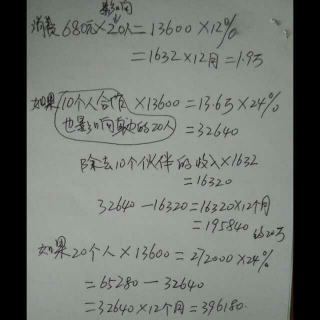 影响
消费680元×20人=13600×12%
=1632×12月=1.9万
如果10个人合作×13600=13.6万×24%
也影响身边的20人 =32640
除去10个伙伴的收入×1632
=16320
32640-16320=16320×12个月
=195840 约20万
如果20个人×13600=272000×24%
=65280-32640
=32640×12个月=396180.